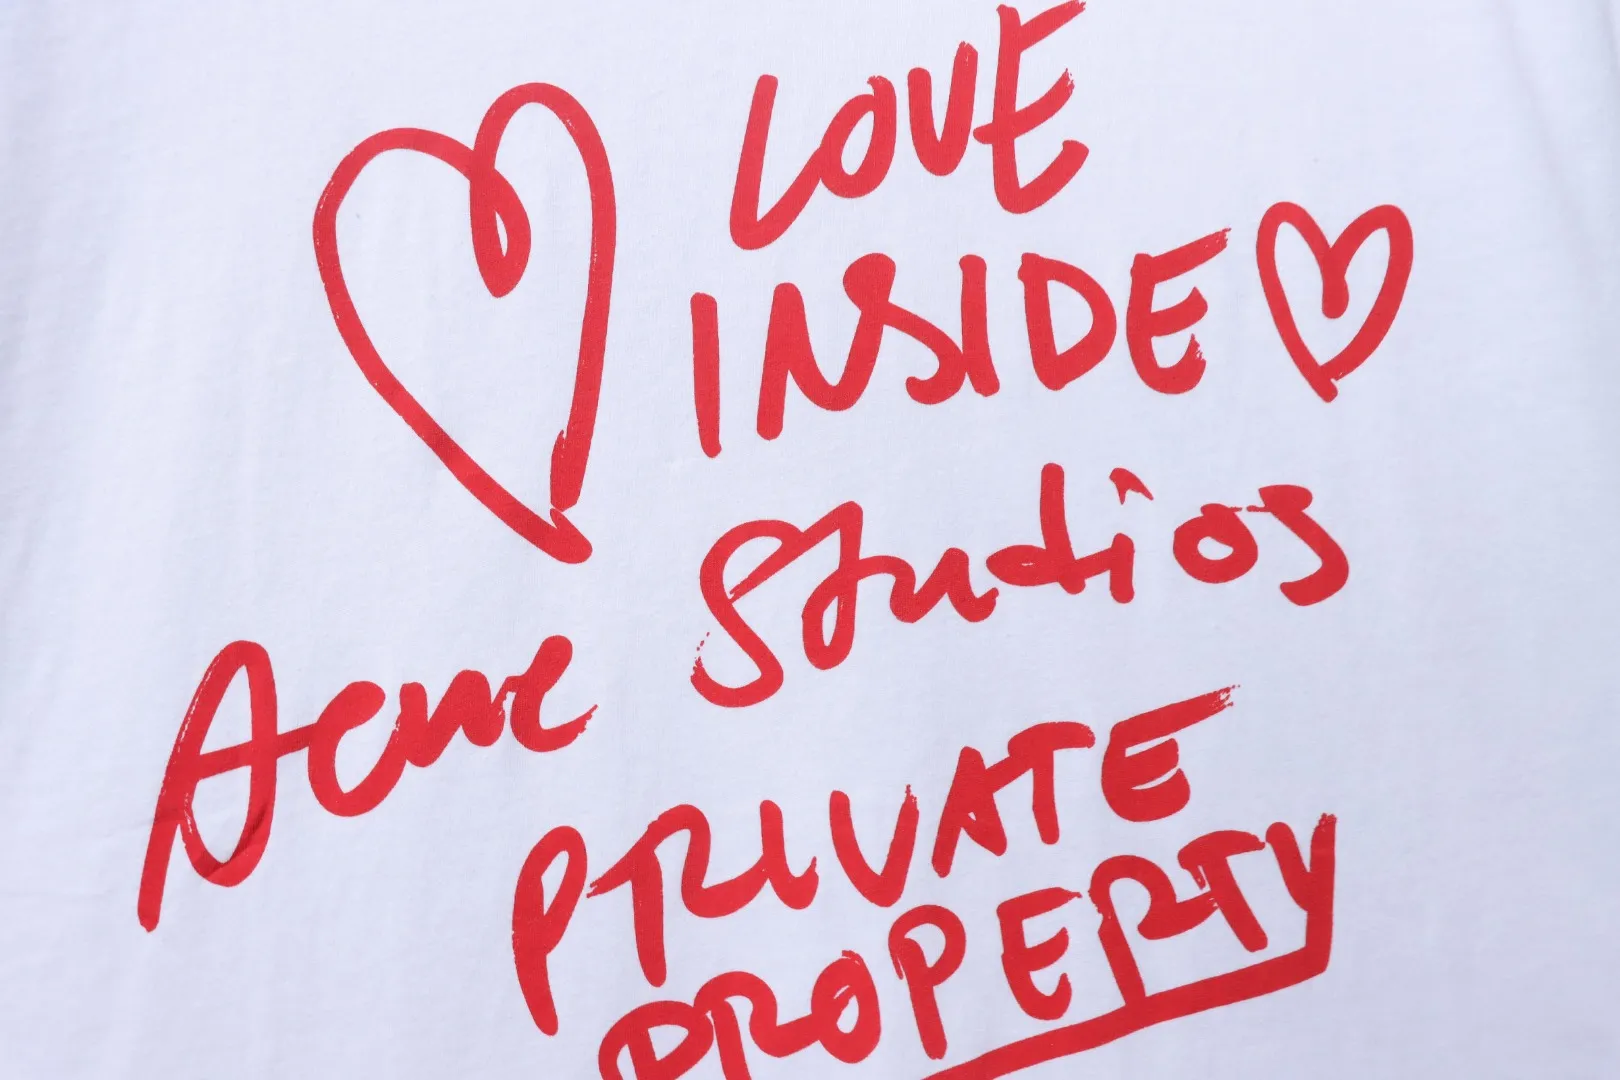 LOVE
INSIDE
Acne Studios
PRIVATE
PROPERTY